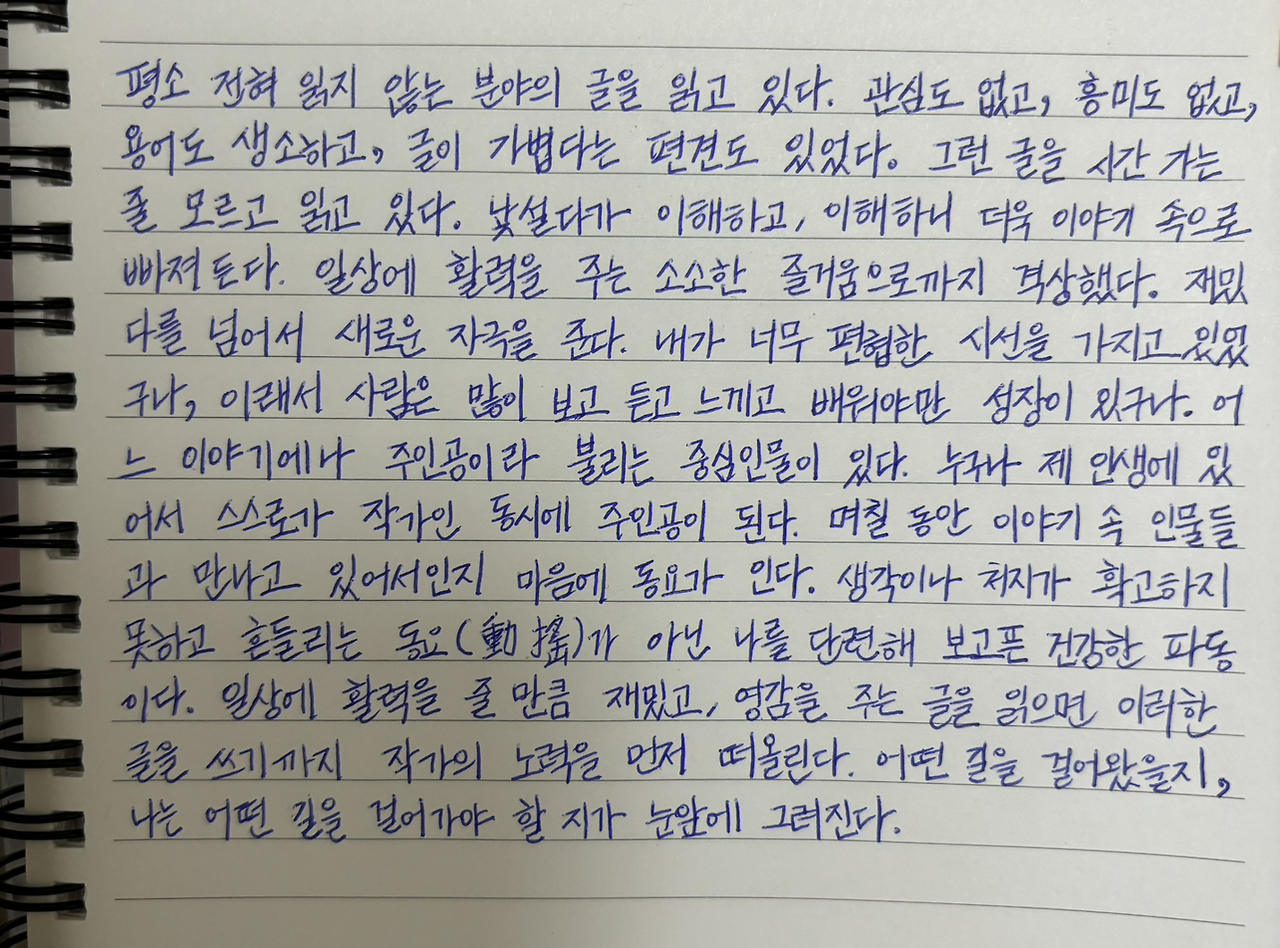 평소 전혀 읽지 않는 분야의 글을 읽고 있다. 관심도 없고, 흥미도 없고,
용어도 생소하고, 글이 가볍다는 편견도 있었다. 그런 글을 시간 가는
줄 모르고 읽고 있다. 낯설다가 이해하고, 이해하니 더욱 이야기 속으로
빠져든다. 일상에 활력을 주는 소소한 즐거움으로까지 격상했다. 재밌
다를 넘어서 새로운 자극을 준다. 내가 너무 편협한 시선을 가지고 있었
구나, 이래서 사람은 많이 보고 듣고 느끼고 배워야만 성장이 있구나. 어
느 이야기에나 주인공이라 불리는 중심인물이 있다. 누구나 제 인생에 있
어서 스스로가 작가인 동시에 주인공이 된다. 며칠 동안 이야기 속 인물들
과 만나고 있어서인지 마음에 동요가 인다. 생각이나 처지가 확고하지
못하고 흔들리는 동요(動搖)가 아닌 나를 단련해 보고픈 건강한 파동
이다. 일상에 활력을 줄 만큼 재밌고, 영감을 주는 글을 읽으면 이러한
글을 쓰기까지 작가의 노력을 먼저 떠올린다. 어떤 길을 걸어왔을지,
나는 어떤 길을 걸어가야 할 지가 눈앞에 그려진다.